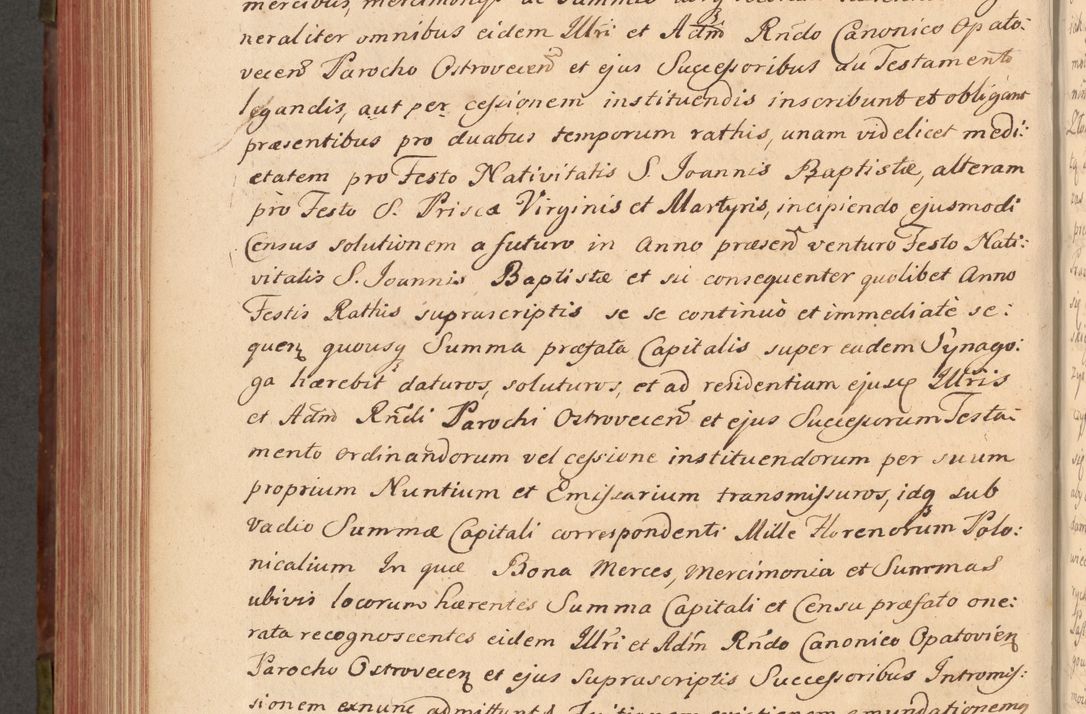 neraliter omnibus eidem Illri et Adm Rndo Canonico Opato-
vecen Parocho Ostrovecen et ejus Successoribus au Testamento
legandis, aut per cessionem instituendis inscribunt et obligant
præsentibus pro duabus temporum rathis, unam videlicet medi:
etatem pro Festo Nativitatis S. Joannis Baptistæ, alteram
pro Festo S. Priscæ Virginis et Martyris, incipiendo ejusmodi
Census solutionem a futuro in Anno præsen venturo Festo Nati:
vitatis S. Joannis Baptistæ et sic consequenter quolibet Anno
Festis Rathis supræscriptis se se continuò et immediatè se:
quen quousq Summa præfata Capitalis super eadem Synago:
ga hærebit daturos, soluturos, et ad residentiam ejusq Illris
et Adm Rndi Parochi Ostrovecen et ejus Successorum Testa-
mento ordinandorum vel cessione instituendorum per suum
proprium Nuntium et Emissarium transmissuros, idq sub
vadio Summæ Capitali correspondenti Mille Florenorum Polo:
nicalium In quæ Bona Merces, Mercimonia et Summas
ubivis locorum hærentes Summa Capitali et Censu præfato one:
rata recognoscentes eidem Illri et Adm Rndo Canonico Opatovien
Parocho Ostrovecen et ejus Supræscriptis Successoribus Intromis:
sionem exnunc admittunt emundationemq